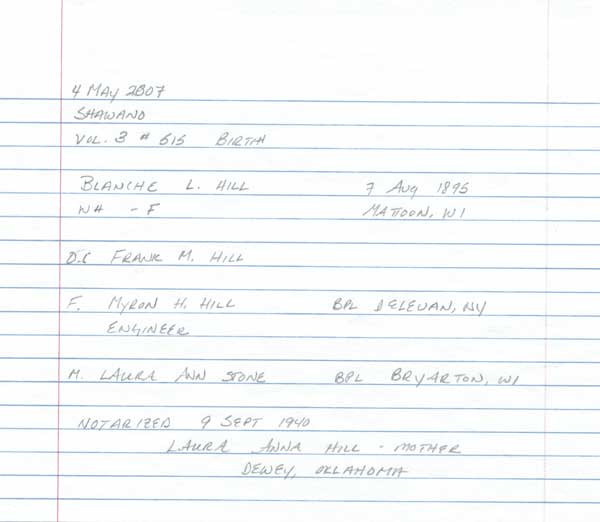 4 May 2007
SHAWANO
VOL. 3 # 615 BIRTH
BLANCHE L. HILL 7 Aug 1895
WH - F MATTOON, WI
O.C FRANK M. HILL
F. MYRON H. HILL BPL DELEVAN, NY
ENGINEER
M. LAURA ANN STONE BPL BRYARTON, WI
NOTARIZED 9 SEPT 1940
LAURA ANNA HILL - MOTHER
DEWEY, OKLAHOMA